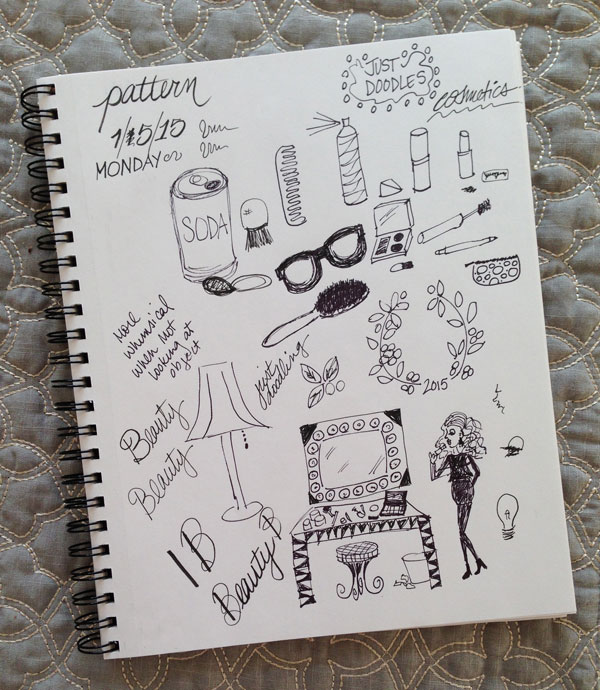 pattern
JUST
DOODLES
cosmetics
1/15/15
MONDAY
SODA
More
whimsical
when not
looking at
object
just
doodling
2015
Beauty
Beauty
B
Beauty B